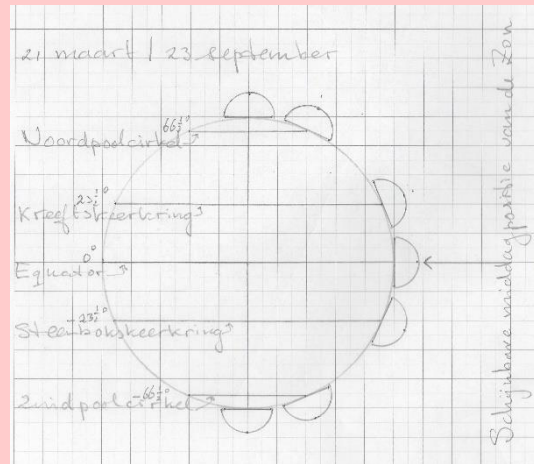 21 maart / 23 september
66½°
Noordpoolcirkel
23½°
Kreeftskeerkring
0°
Equator
-23½°
Steenbokskeerkring
-66½°
Zuidpoolcirkel
Schijnbare middagpositie van de Zon